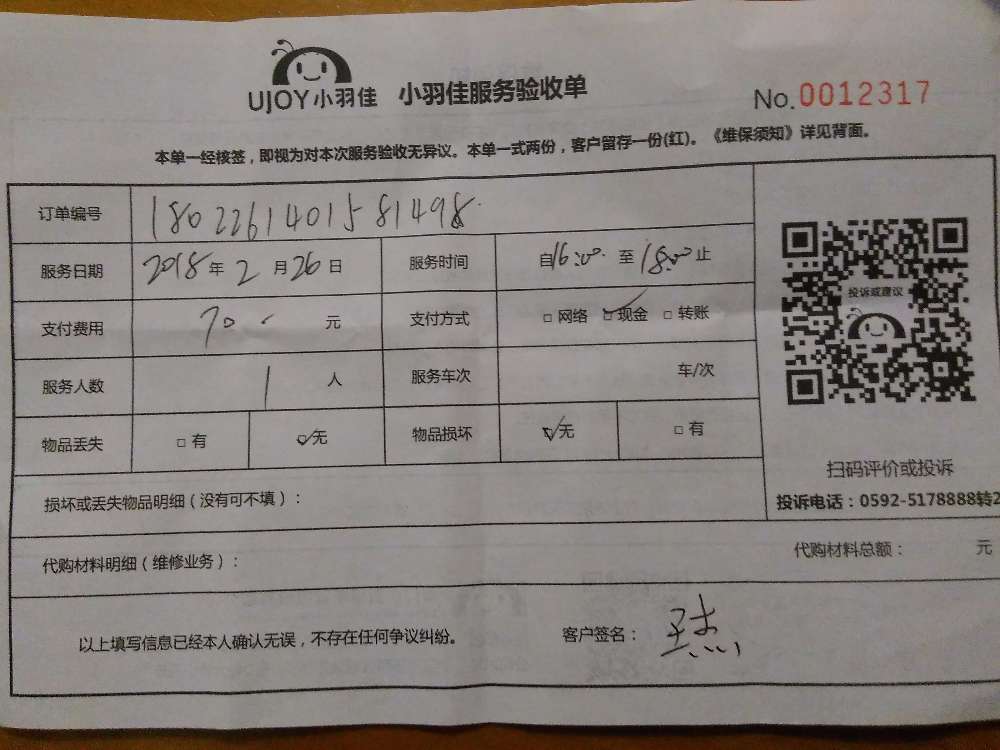 UJOY小羽佳 小羽佳服务验收单
No.0012317
本单一经核签，即视为对本次服务验收无异议。本单一式两份，客户留存一份(红)。《维保须知》详见背面。
订单编号 1802261401581498
服务日期 2018年2月26日 服务时间 自16:00至18:00止
支付费用 70 元 支付方式 □网络 □现金 □转账
投诉或建议
服务人数 1 人 服务车次 车/次
物品丢失 □有 □无 物品损坏 □无 □有
扫码评价或投诉
投诉电话：0592-5178888转2
损坏或丢失物品明细（没有可不填）：
代购材料明细（维修业务）： 代购材料总额： 元
以上填写信息已经本人确认无误，不存在任何争议纠纷。 客户签名：